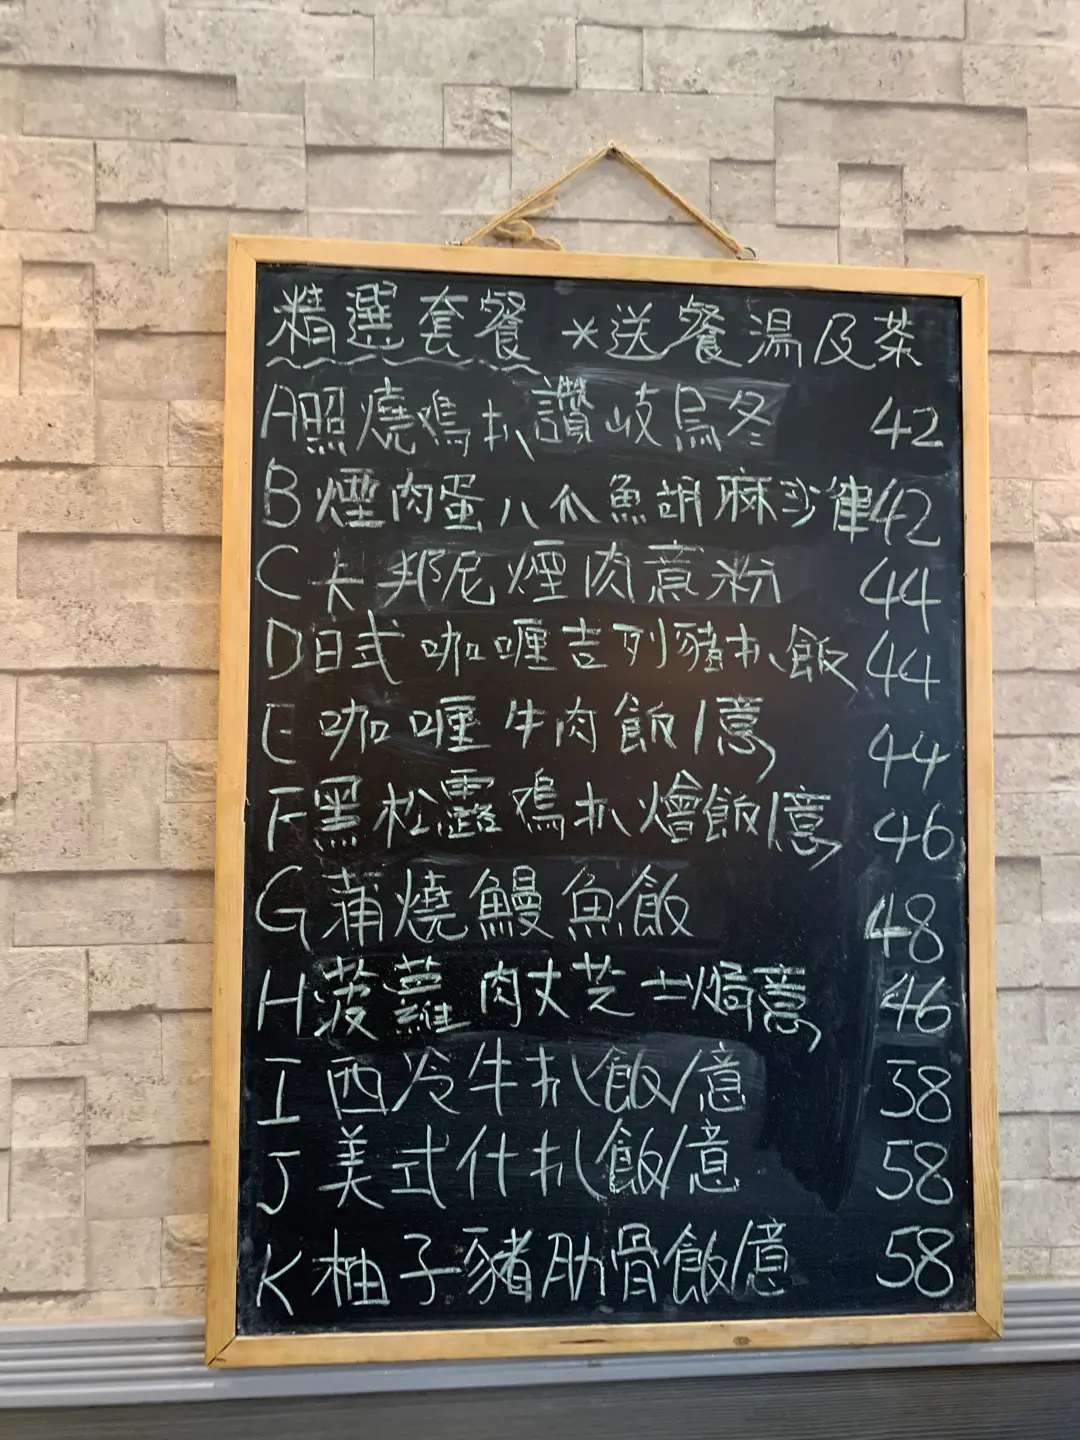 精選套餐 *送餐湯及茶
A照燒鳮扒讚岐烏冬 42
B 煙肉蛋八爪魚胡麻沙律 42
C 卡邦尼煙肉意粉 44
D日式咖喱吉列豬扒飯 44
E 咖喱牛肉飯/意 44
F黑松露鳮扒燴飯/意 46
G蒲燒鰻魚飯 48
H菠蘿肉丈芝士焗意 46
I 西冷牛扒飯/意 38
J 美式什扒飯/意 58
K柚子豬肋骨飯/意 58